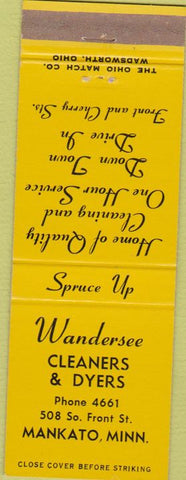 THE OHIO MATCH CO.
WADSWORTH, OHIO
Home of Quality
Cleaning and
One Hour Service
Down Town
Drive In
Front and Cherry Sts.
Spruce Up
Wandersee
CLEANERS
& DYERS
Phone 4661
508 So. Front St.
MANKATO, MINN.
CLOSE COVER BEFORE STRIKING